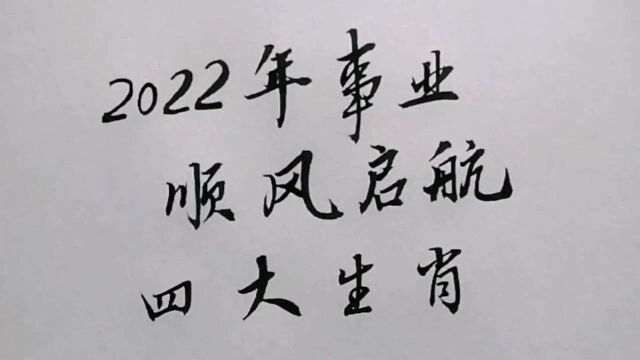 2022年事业
顺风启航
四大生肖